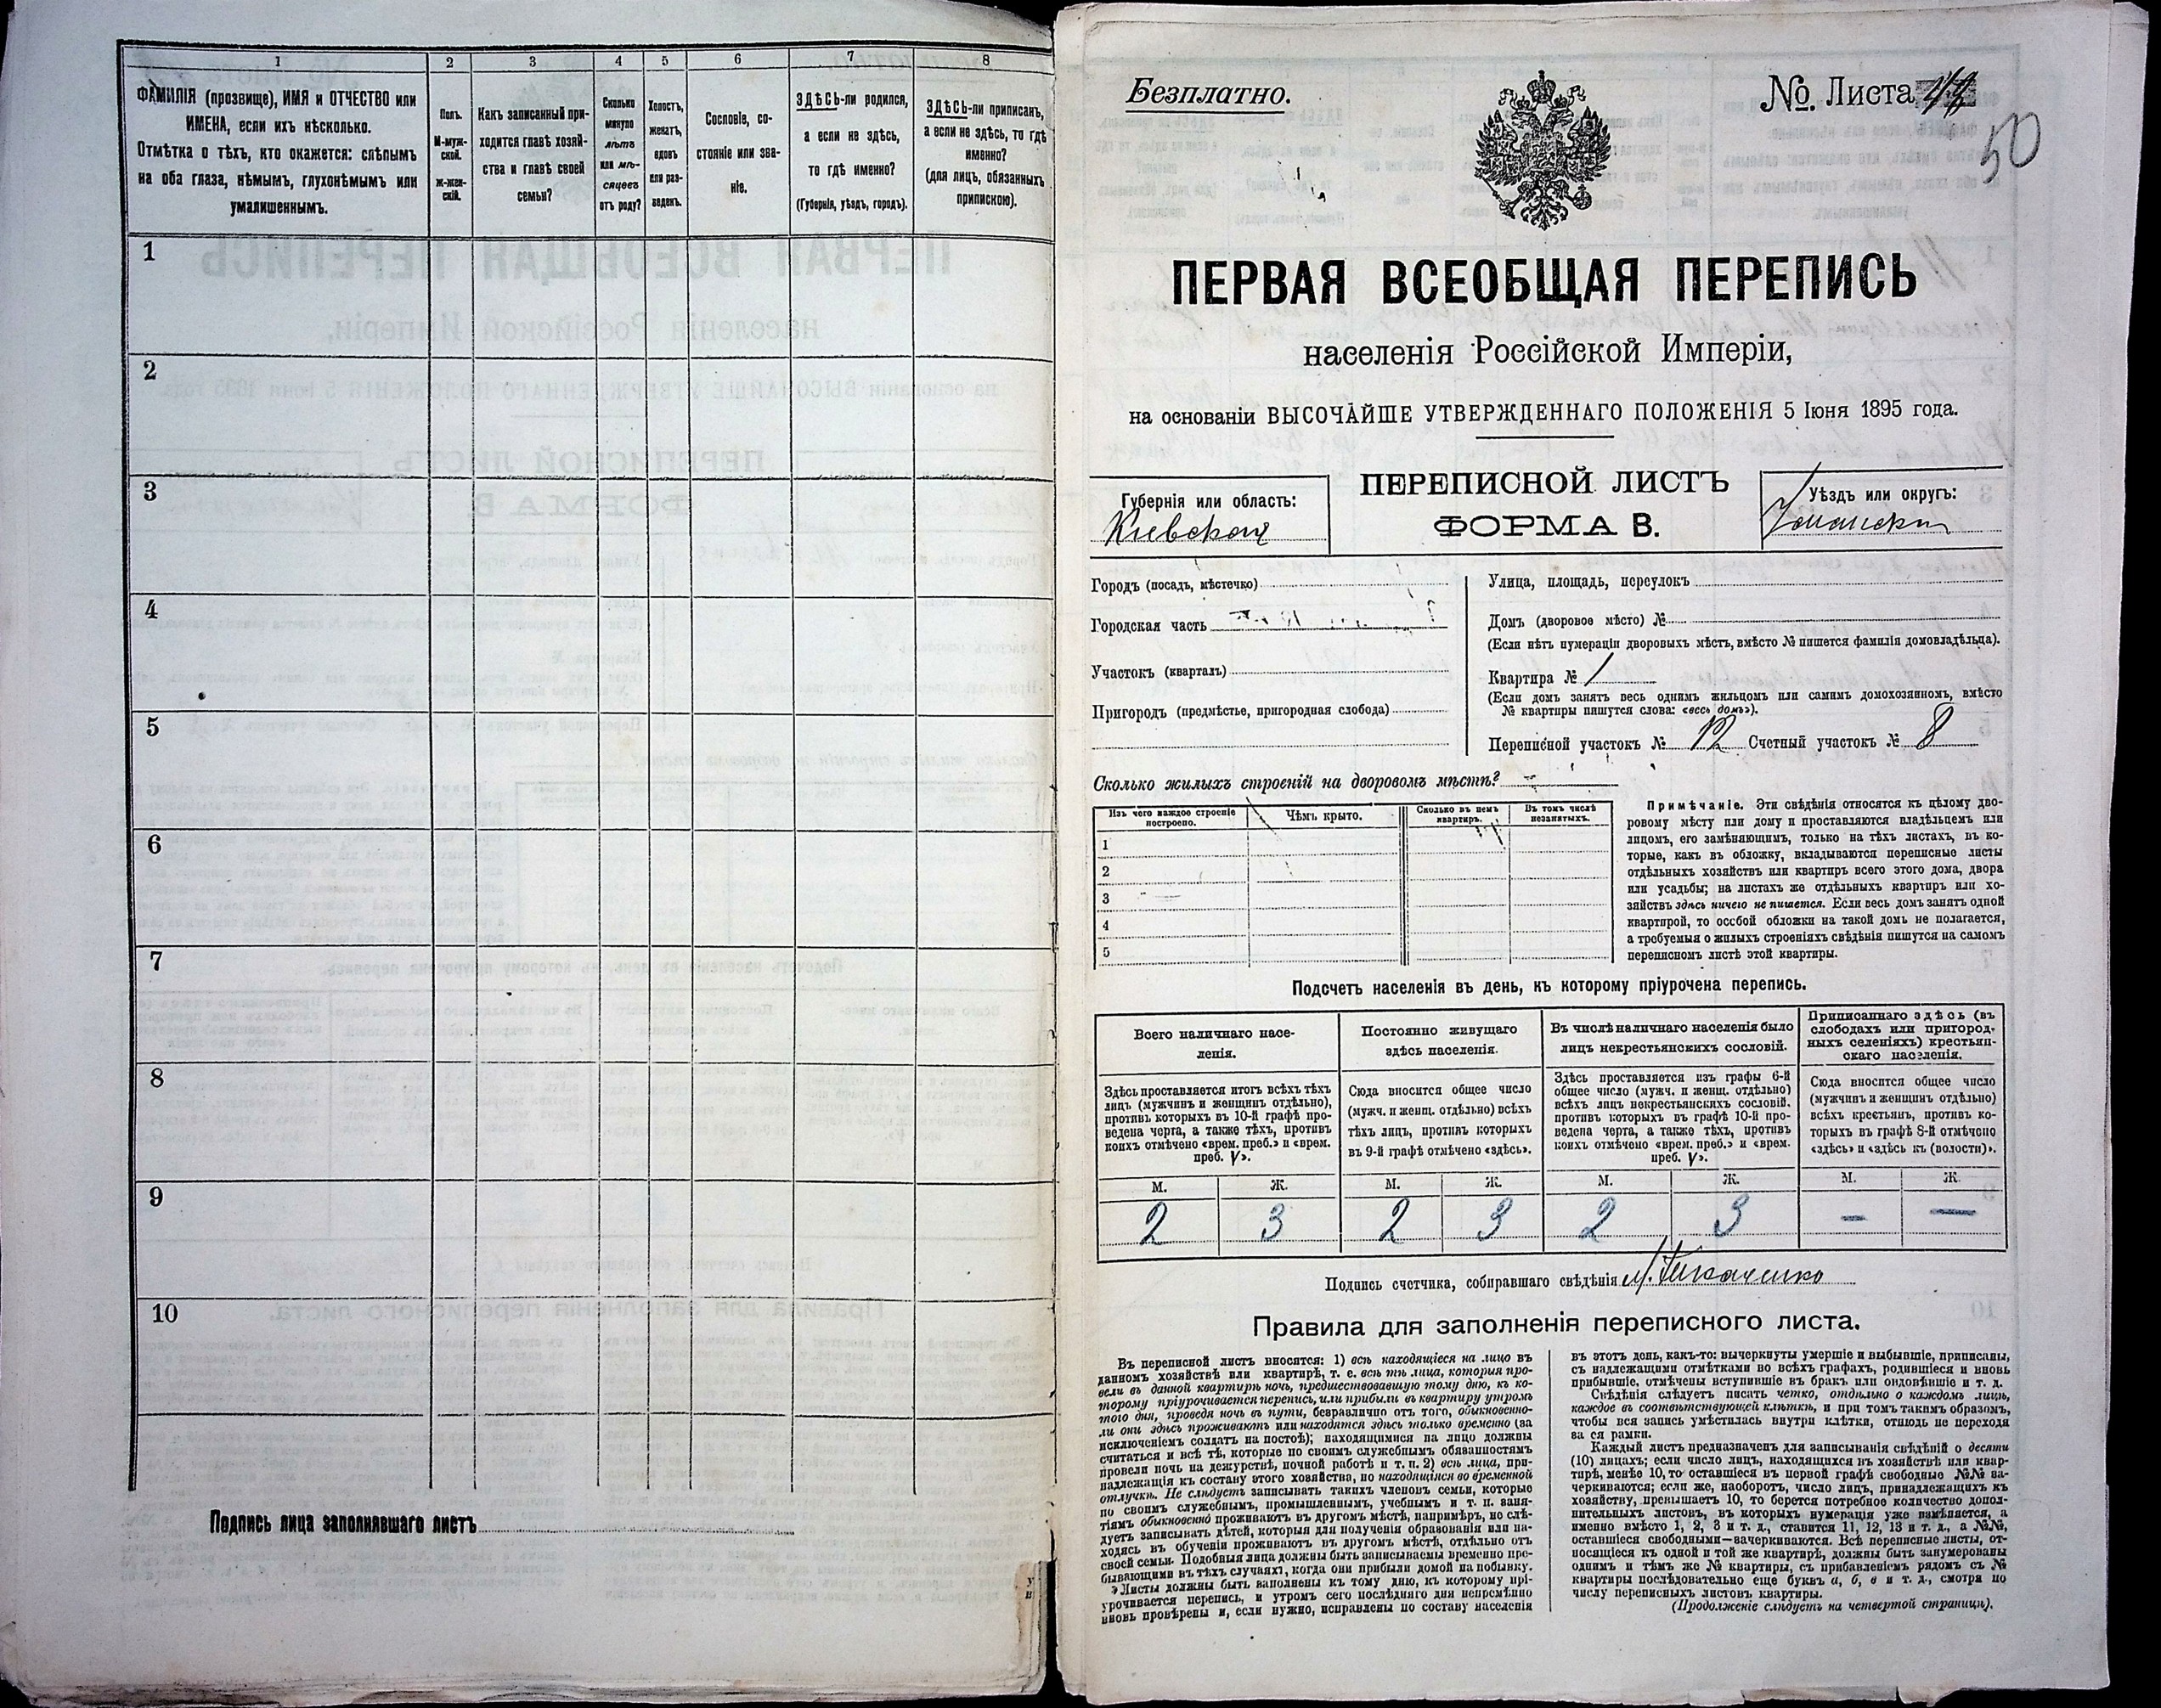 1
2
3
4
5
6
7
8
ФАМИЛІЯ (прозвище), ИМЯ и ОТЧЕСТВО или
ИМЕНА, если ихъ нѣсколько.
Отмѣтка о тѣхъ, кто окажется: слѣпымъ
на оба глаза, нѣмымъ, глухонѣмымъ или
умалишеннымъ.
Полъ.
М-муж-
ской.
ж-жен-
скій.
Какъ записанный при-
ходится главѣ хозяй-
ства и главѣ своей
семьи?
Сколько
минуло
лѣтъ
или мѣ-
сяцевъ
отъ роду?
Холостъ,
женатъ,
вдовъ
или раз-
веденъ.
Сословіе, со-
стояніе или зва-
ніе.
ЗДѢСЬ-ли родился,
а если не здѣсь,
то гдѣ именно?
(Губернія, уѣздъ, городъ).
ЗДѢСЬ-ли приписанъ,
а если не здѣсь, то гдѣ
именно?
(для лицъ, обязанныхъ
припискою).
1
2
3
4
5
6
7
8
9
10
Подпись лица заполнявшаго листъ
Безплатно.
№. Листа
50
ПЕРВАЯ ВСЕОБЩАЯ ПЕРЕПИСЬ
населенія Россійской Имперіи,
на основаніи ВЫСОЧАЙШЕ УТВЕРЖДЕННАГО ПОЛОЖЕНІЯ 5 Іюня 1895 года.
ПЕРЕПИСНОЙ ЛИСТЪ
ФОРМА В.
Губернія или область:
Кіевская
Уѣздъ или округъ:
Уманскій
Городъ (посадъ, мѣстечко)
Городская часть
Участокъ (кварталъ)
Пригородъ (предмѣстье, пригородная слобода)
Улица, площадь, переулокъ
Домъ (дворовое мѣсто) №
(Если нѣтъ нумераціи дворовыхъ мѣстъ, вмѣсто № пишется фамилія домовладѣльца).
Квартира № 1
(Если домъ занятъ весь однимъ жильцомъ или самимъ домохозяиномъ, вмѣсто
№ квартиры пишутся слова: «весь домъ»).
Переписной участокъ № 12 Счетный участокъ № 8
Сколько жилыхъ строеній на дворовомъ мѣстѣ?
Изъ чего каждое строеніе
построено.
Чѣмъ крыто.
Сколько въ немъ
квартиръ.
Въ томъ числѣ
незанятыхъ.
1
2
3
4
5
Примѣчаніе. Эти свѣдѣнія относятся къ цѣлому дво-
ровому мѣсту или дому и проставляются владѣльцемъ или
лицомъ, его замѣняющимъ, только на тѣхъ листахъ, въ ко-
торые, какъ въ обложку, вкладываются переписные листы
отдѣльныхъ хозяйствъ или квартиръ всего этого дома, двора
или усадьбы; на листахъ же отдѣльныхъ квартиръ или хо-
зяйствъ здѣсь ничего не пишется. Если весь домъ занятъ одной
квартирой, то особой обложки на такой домъ не полагается,
а требуемыя о жилыхъ строеніяхъ свѣдѣнія пишутся на самомъ
переписномъ листѣ этой квартиры.
Подсчетъ населенія въ день, къ которому пріурочена перепись.
Всего наличнаго насе-
ленія.
Постоянно живущаго
здѣсь населенія.
Въ числѣ наличнаго населенія было
лицъ некрестьянскихъ сословій.
Приписаннаго здѣсь (въ
слободахъ или пригород-
ныхъ селеніяхъ) крестьян-
скаго населенія.
Здѣсь проставляется итогъ всѣхъ тѣхъ
лицъ (мужчинъ и женщинъ отдѣльно),
противъ которыхъ въ 10-й графѣ про-
ведена черта, а также тѣхъ, противъ
коихъ отмѣчено «врем. преб.» и «врем.
преб. V».
Сюда вносится общее число
(мужч. и женщ. отдѣльно) всѣхъ
тѣхъ лицъ, противъ которыхъ
въ 9-й графѣ отмѣчено «здѣсь».
Здѣсь проставляется изъ графы 6-й
общее число (мужч. и женщ. отдѣльно)
всѣхъ лицъ некрестьянскихъ сословій,
противъ которыхъ въ графѣ 10-й про-
ведена черта, а также тѣхъ, противъ
коихъ отмѣчено «врем. преб.» и «врем.
преб. V».
Сюда вносится общее число
(мужчинъ и женщинъ отдѣльно)
всѣхъ крестьянъ, противъ ко-
торыхъ въ графѣ 8-й отмѣчено
«здѣсь» и «здѣсь къ (волости)».
М. Ж. М. Ж. М. Ж. М. Ж.
2 3 2 3 2 3 — —
Подпись счетчика, собиравшаго свѣдѣнія М. Ткаченко
Правила для заполненія переписного листа.
Въ переписной листъ вносятся: 1) всѣ находящіеся на лицо въ
данномъ хозяйствѣ или квартирѣ, т. е. всѣ тѣ лица, которыя про-
вели въ данной квартирѣ ночь, предшествовавшую тому дню, къ ко-
торому пріурочивается перепись, или прибыли въ квартиру утромъ
того дня, проведя ночь въ пути, безразлично отъ того, обыкновенно-
ли они здѣсь проживаютъ или находятся здѣсь только временно (за
исключеніемъ солдатъ на постоѣ); находящимися на лицо должны
считаться и всѣ тѣ, которые по своимъ служебнымъ обязанностямъ
провели ночь на дежурствѣ, ночной работѣ и т. п. 2) всѣ лица, при-
надлежащія къ составу этого хозяйства, но находящіяся во временной
отлучкѣ. Не слѣдуетъ записывать такихъ членовъ семьи, которые
по своимъ служебнымъ, промышленнымъ, учебнымъ и т. п. заня-
тіямъ обыкновенно проживаютъ въ другомъ мѣстѣ, напримѣръ, но слѣ-
дуетъ записывать дѣтей, которыя для полученія образованія или на-
ходясь въ обученіи проживаютъ въ другомъ мѣстѣ, отдѣльно отъ
своей семьи. Подобныя лица должны быть записываемы временно пре-
бывающими въ тѣхъ случаяхъ, когда они прибыли домой на побывку.
Листы должны быть заполнены къ тому дню, къ которому прі-
урочивается перепись, и утромъ сего послѣдняго дня непремѣнно
вновь провѣрены и, если нужно, исправлены по составу населенія
въ этотъ день, какъ-то: вычеркнуты умершіе и выбывшіе, приписаны,
съ надлежащими отмѣтками во всѣхъ графахъ, родившіеся и вновь
прибывшіе, отмѣчены вступившіе въ бракъ или овдовѣвшіе и т. д.
Свѣдѣнія слѣдуетъ писать четко, отдѣльно о каждомъ лицѣ,
каждое въ соотвѣтствующей клѣткѣ, и при томъ такимъ образомъ,
чтобы вся запись умѣстилась внутри клѣтки, отнюдь не переходя
за ея рамки.
Каждый листъ предназначенъ для записыванія свѣдѣній о десяти
(10) лицахъ; если число лицъ, находящихся въ хозяйствѣ или квар-
тирѣ, менѣе 10, то оставшіеся въ первой графѣ свободные №№ за-
черкиваются; если же, наоборотъ, число лицъ, принадлежащихъ къ
хозяйству, превышаетъ 10, то берется потребное количество допол-
нительныхъ листовъ, въ которыхъ нумерація уже измѣняется, а
именно вмѣсто 1, 2, 3 и т. д., ставится 11, 12, 13 и т. д., а №№,
оставшіеся свободными—зачеркиваются. Всѣ переписные листы, от-
носящіеся къ одной и той же квартирѣ, должны быть занумерованы
однимъ и тѣмъ же № квартиры, съ прибавленіемъ рядомъ съ №
квартиры послѣдовательно еще буквъ а, б, в и т. д., смотря по
числу переписныхъ листовъ квартиры.
(Продолженіе слѣдуетъ на четвертой страницѣ).